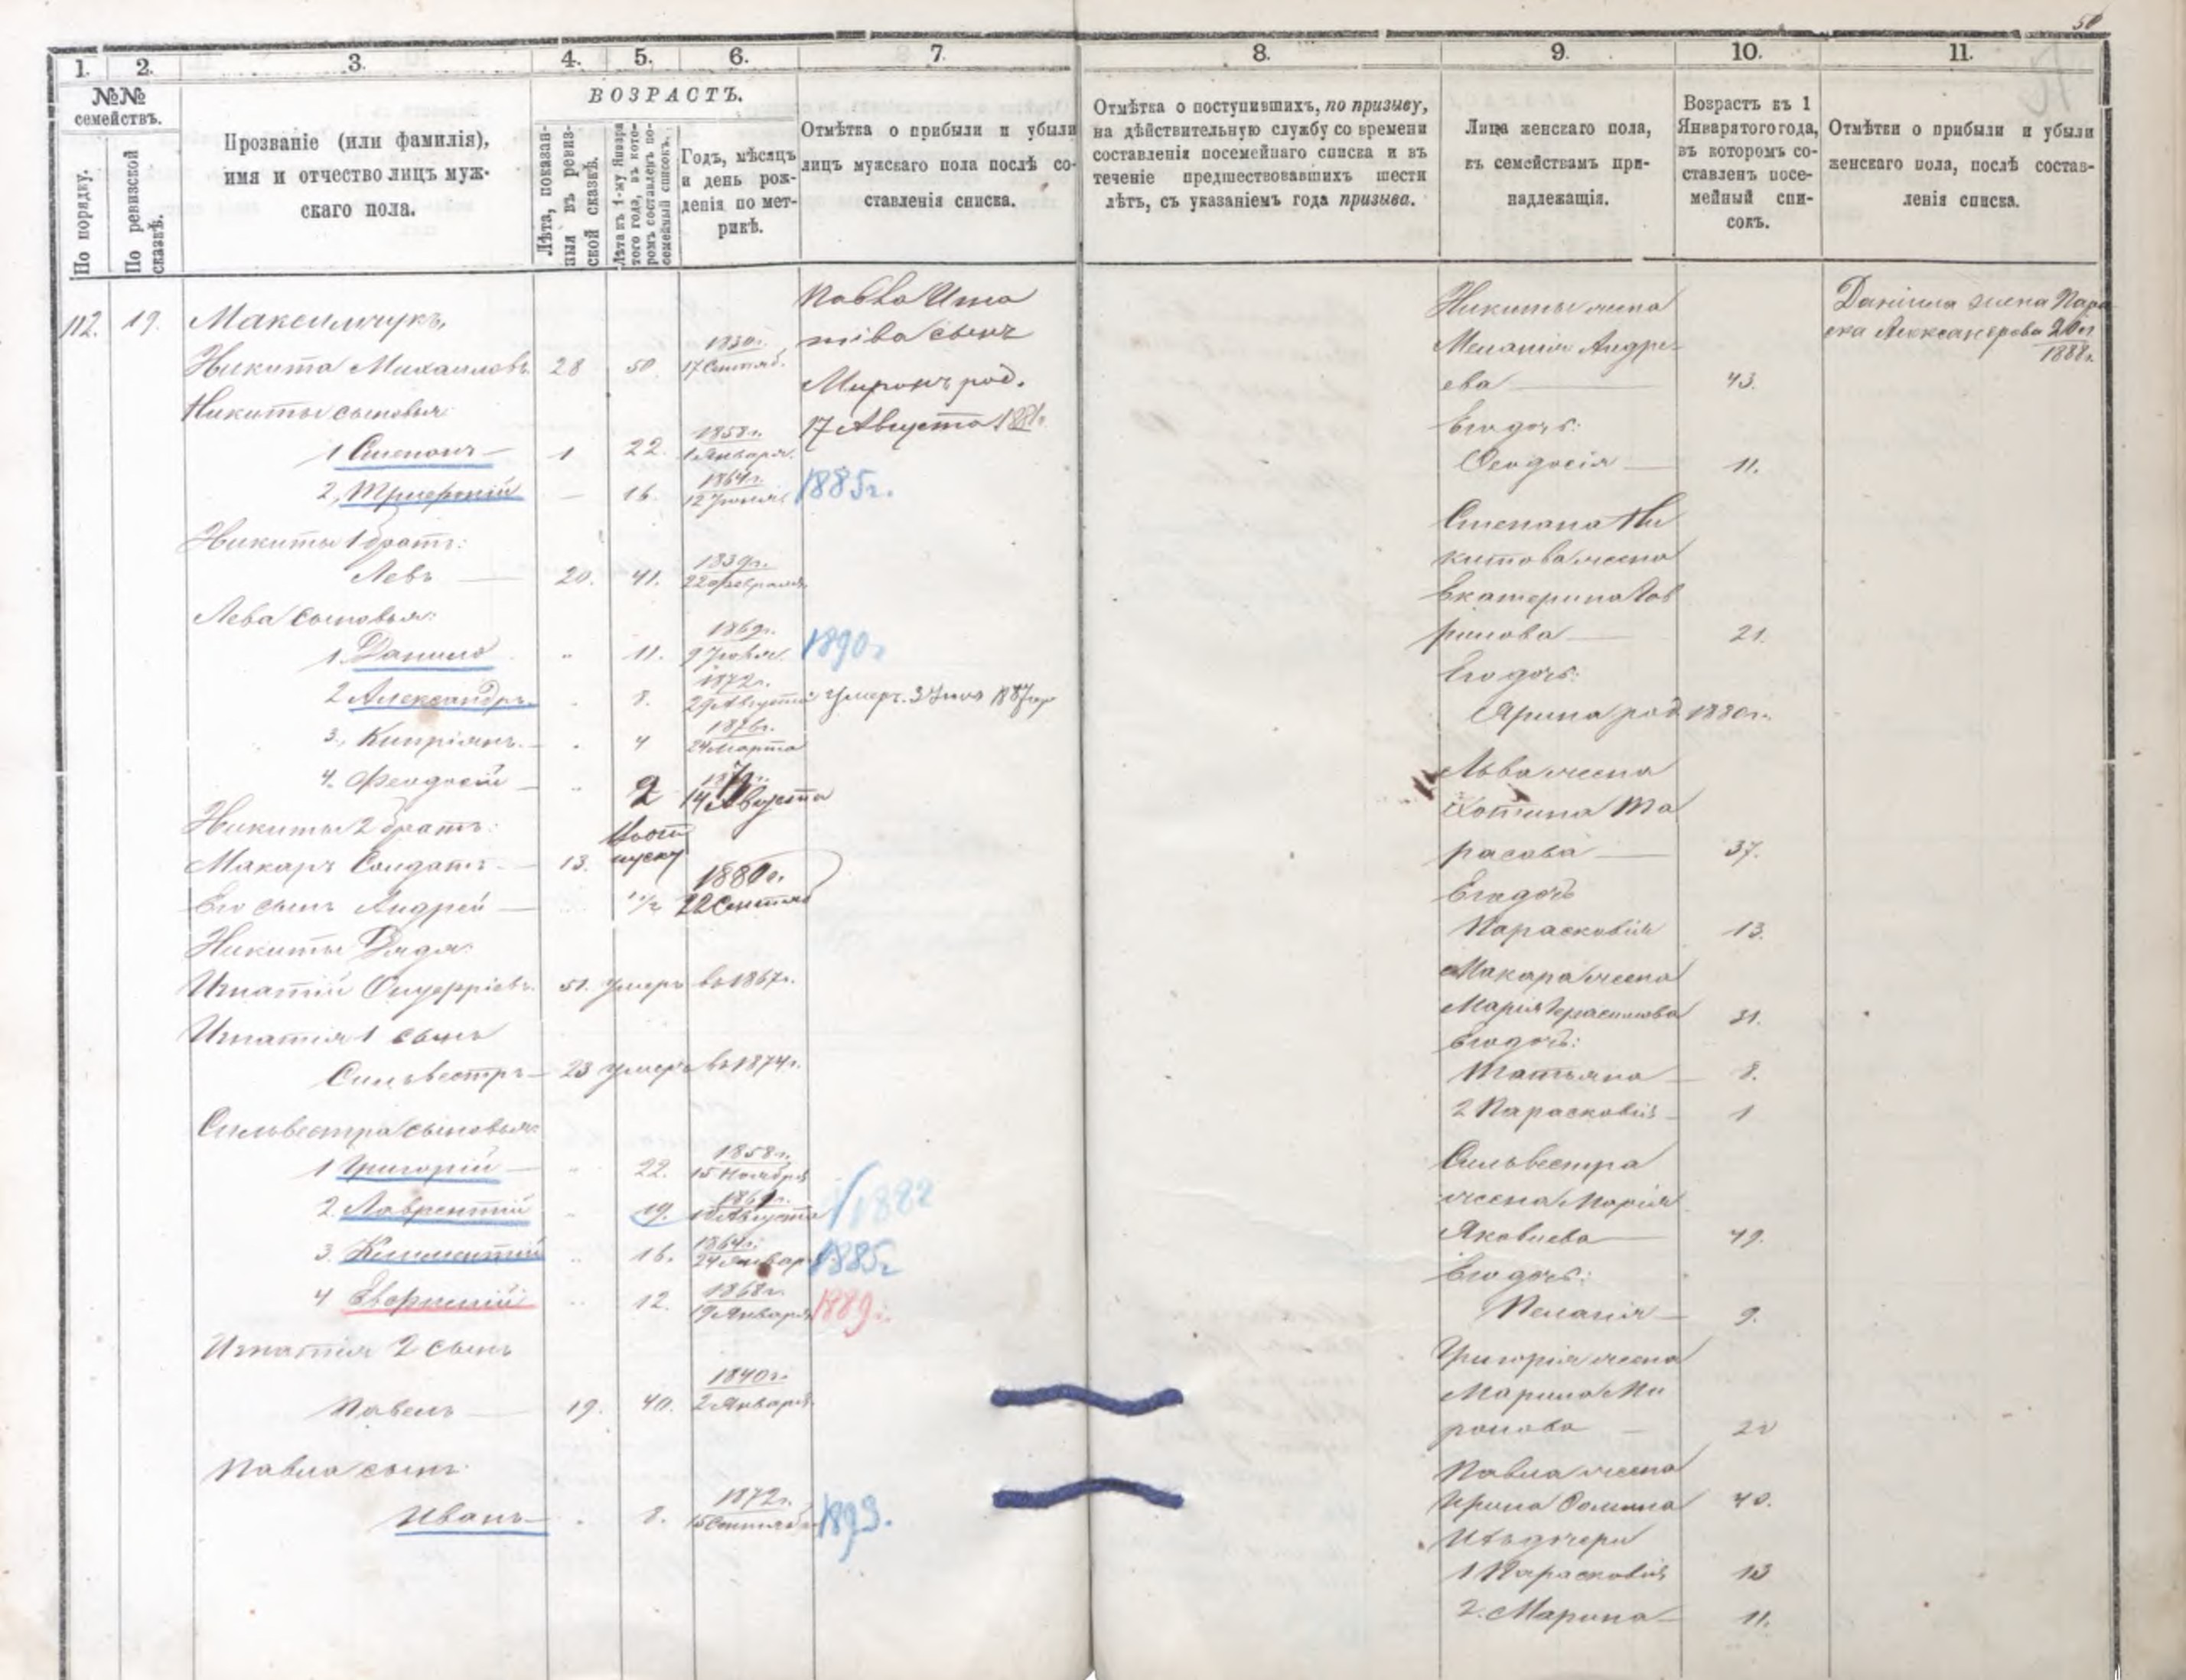 50
1. 2. 3. 4. 5. 6. 7. 8. 9. 10. 11.
№№ семействъ.
По порядку.
По ревизской сказкѣ.
Прозваніе (или фамилія),
имя и отчество лицъ муж-
скаго пола.
ВОЗРАСТЪ.
Лѣта, показан-
ныя въ ревиз-
ской сказкѣ.
Лѣта къ 1-му Января
того года, въ кото-
ромъ составленъ по-
семейный списокъ.
Годъ, мѣсяцъ
и день рож-
денія по мет-
рикѣ.
Отмѣтка о прибыли и убыли
лицъ мужскаго пола послѣ со-
ставленія списка.
Отмѣтка о поступившихъ, по призыву,
на дѣйствительную службу со времени
составленія посемейнаго списка и въ
теченіе предшествовавшихъ шести
лѣтъ, съ указаніемъ года призыва.
Лица женскаго пола,
къ семействамъ при-
надлежащія.
Возрастъ къ 1
Января того года,
въ которомъ со-
ставленъ посе-
мейный спи-
сокъ.
Отмѣтки о прибыли и убыли
женскаго пола, послѣ состав-
ленія списка.
112. 19. Максимчукъ,
Никита Михаиловъ 28 50 1830г. 17 Сентяб.
Никиты сыновья:
1 Степанъ — 1 22. 1858г. 1 Января.
2, Трифоній — 16. 1864г. 12 Іюня 1885г.
Никиты 1 братъ:
Левъ — 20. 41. 1839г. 22 Февраля
Лева сыновья:
1. Данило " 11. 1869г. 1890г
2 Александръ. 8. 1872г. 29 Августа умеръ. 3 1887
3., Кипріянъ. 4 1876г. 24 Марта
4. Феодосій — " 2 14 Августа
Никиты 2 братъ:
Макаръ Солдатъ — 13. Въ от
пуску
Его сынъ Андрей — 1/2 1880г. 22 Сентяб
Никиты Дядя:
Игнатій Онуфріевъ. 51. умеръ въ 1867г.
Игнатія 1 сынъ
Сильвестръ — 23 умеръ въ 1874г.
Сильвестра сыновья:
1 Григорій — " 22. 1858г. 15 Ноября
2. Лаврентій " 19. Августа 1882
3. Климентій " 16. 1864г. 24 Января 1885г
4 " 12. 1868г. 19 Января 1889г.
Игнатія 2 сынъ
Павелъ — 19. 40. 1840г. 2 Января.
Павла сынъ:
Иванъ — 8. 1872г. 15 Сентября 1893.
Павла Игна
тіва сынъ
Миронъ род.
17 Августа 1881г.
Никиты жена
Меланія Андре-
ева — 43.
Его дочь:
Феодосія — 11.
Степана Ни
китова жена
Екатерина Гав
рилова — 21.
Его дочь:
Ярина род 1880г.
Льва жена
Хотина Та
расова — 37.
Его дочь
Парасковія 13.
Макара жена
Марія Герасимова 31.
Его дочь:
Татьяна — 8.
2 Парасковія — 1
Сильвестра
жена Марія
Яковлева — 49.
Его дочь:
Пелагія — 9.
Григорія жена
Марина Ми
ронова — 20
Павла жена
Ирина Фомина 40.
Ихъ дочери
1 Парасковія 13
2. Марина — 11.
Даніила жена Пара
ска Александрова 20л
1888г.